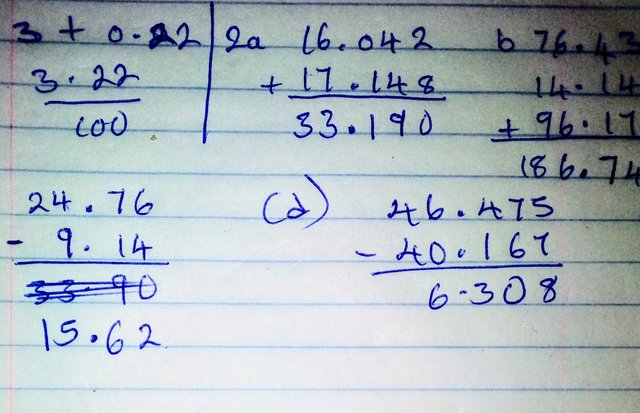 3 + 0.22
3.22
100
2a 16.042
+ 17.148
33.190
b 76.43
14.14
+ 96.17
186.74
24.76
- 9.14
33.90
15.62
(d) 46.475
- 40.167
6.308